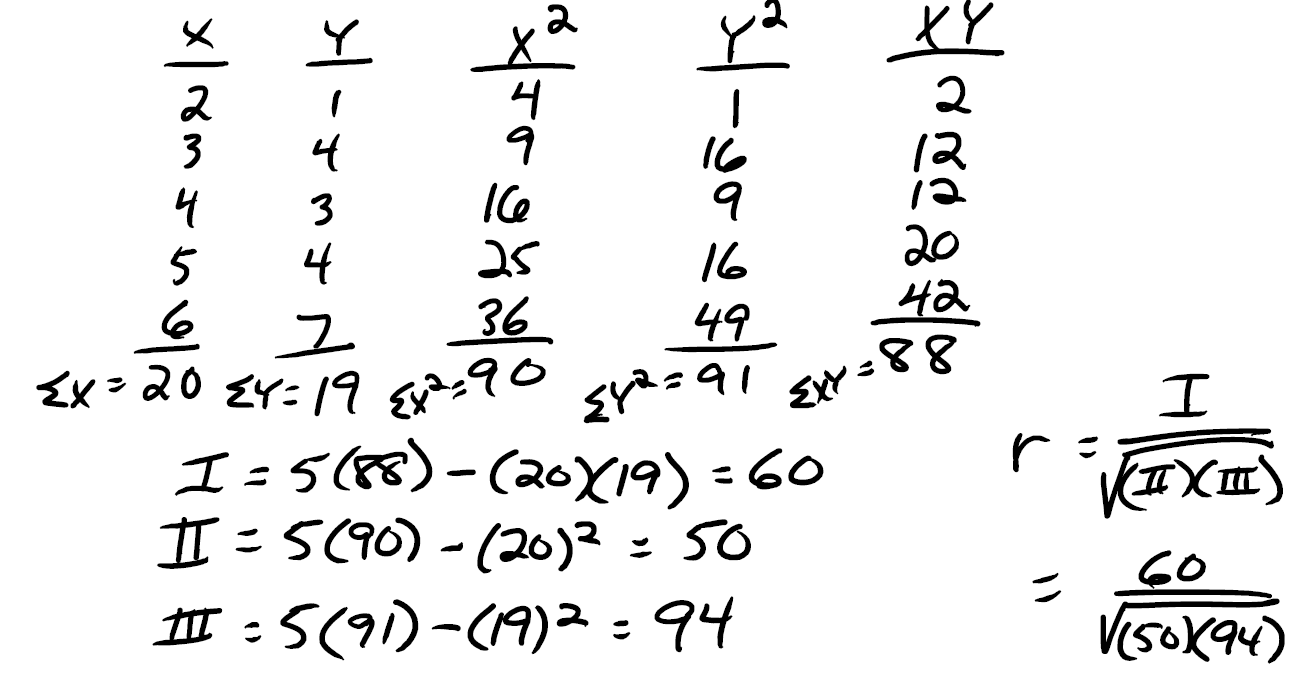 X Y X² Y² XY
2 1 4 1 2
3 4 9 16 12
4 3 16 9 12
5 4 25 16 20
6 7 36 49 42
ΣX = 20 ΣY = 19 ΣX² = 90 ΣY² = 91 ΣXY = 88
I = 5(88) - (20)(19) = 60
II = 5(90) - (20)² = 50
III = 5(91) - (19)² = 94
r = I / √(II)(III)
= 60 / √(50)(94)